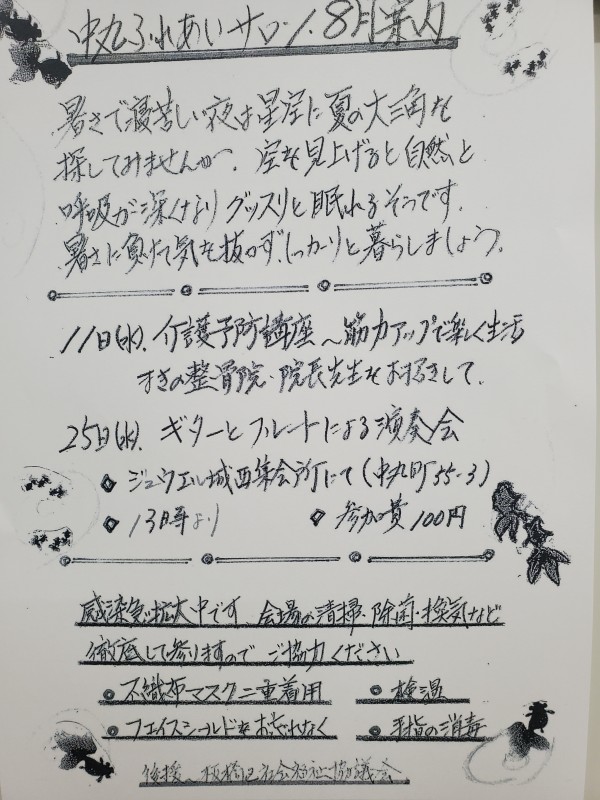 中丸ふれあいサロン.8月案内
暑さで寝苦しい夜は星空に夏の大三角を
探してみませんか. 空を見上げると自然と
呼吸が深くなりグッスリと眠れるそうです.
暑さに負けて気を抜かず.しっかりと暮らしましょう.
11日(水). 介護予防講座〜筋力アップで楽しく生活
まきの整骨院・院長先生をお招きして.
25日(水). ギターとフルートによる演奏会
ジュウエル城西集会所にて(中丸町55-3)
13時より 参加費100円
感染急拡大中です. 会場の清掃・除菌・換気など
徹底して参りますので ご協力ください
不織布マスク二重着用 検温
フェイスシールドをお忘れなく 手指の消毒
後援〜板橋区社会福祉協議会